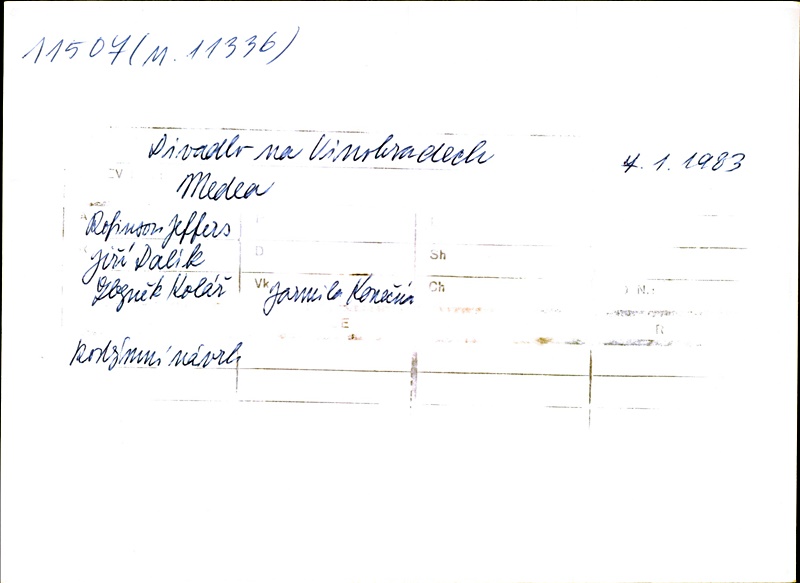 11507 (n. 11336)
Divadlo na Vinohradech 4. 1. 1983
CV
Medea
Robinson Jeffers
Jiří Dalík D Sh
Zbyněk Kolář Vk Jarmila Konečná Ch
E R
kostýmní návrh